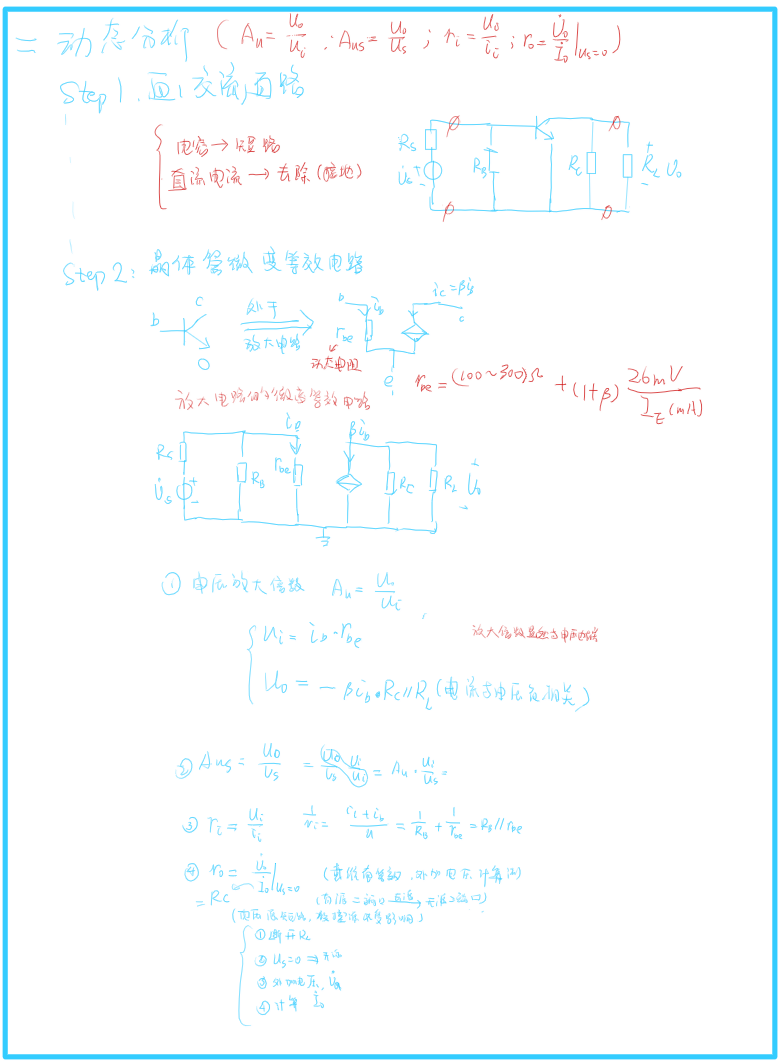 二 动态分析 ( Au = Uo/Ui ; Aus = Uo/Us ; ri = Uo/ii ; ro = U̇o/İo | Us=0 )
Step 1. 画 交流 直路
电容 → 短路
直流电流 → 去除 (接地)
Rs U̇s + − RB Rc + RL Uo −
Step 2: 晶体管微变等效电路
b c 处于 放大电路 b ib rbe 动态电阻 ic = βib c e
rbe = (100~300)Ω + (1+β) 26mV/IE(mA)
放大电路的微变等效电路
Rs U̇s + − RB ie rbe βib RC RL + U̇o −
① 电压放大倍数 Au = Uo/Ui
Ui = ib · rbe
放大倍数是
Uo = − βib · Rc // RL (电流与电压负相关)
② Aus = Uo/Us = Uo/Us Ui/Ui = Au · Ui/Us =
③ ri = Ui/ii 1/ri = ri + ib/u = 1/RB + 1/rbe = RB // rbe
④ ro = U̇o/İo | Us=0 (外加电压 计算 )
= Rc (有源二端口 → 无源二端口)
(电压源短路,
① 断开 RL
② Us=0 ⇒ 无源
③ 外加电压, U̇o
④ 计算 İo